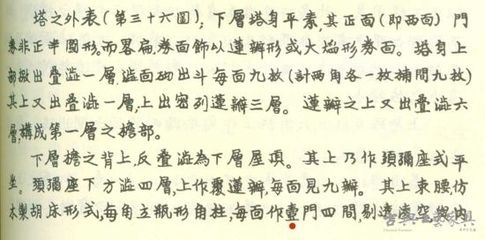 塔之外表(第三十六圖),下層塔身平素,其正面(即西面)門
券非正半圓形,而畧扁,券面飾以蓮瓣形或火焰形券面。塔身上
出疊澁一層,澁面砌出斗每面九枚(計兩角各一枚補間九枚)
其上又出疊澁一層,上出密列蓮瓣三層。蓮瓣之上又出疊澁六
層,構成第一層之檐部。
下層檐之背上,反疊澁為下層屋頂。其上乃作須彌座式平
坐。須彌座下方澁四層,上作覆蓮瓣,每面見九瓣。其上束腰仿
木製胡床形式,每角立瓶形角柱,每面作壼門四間,剔透凌空與內